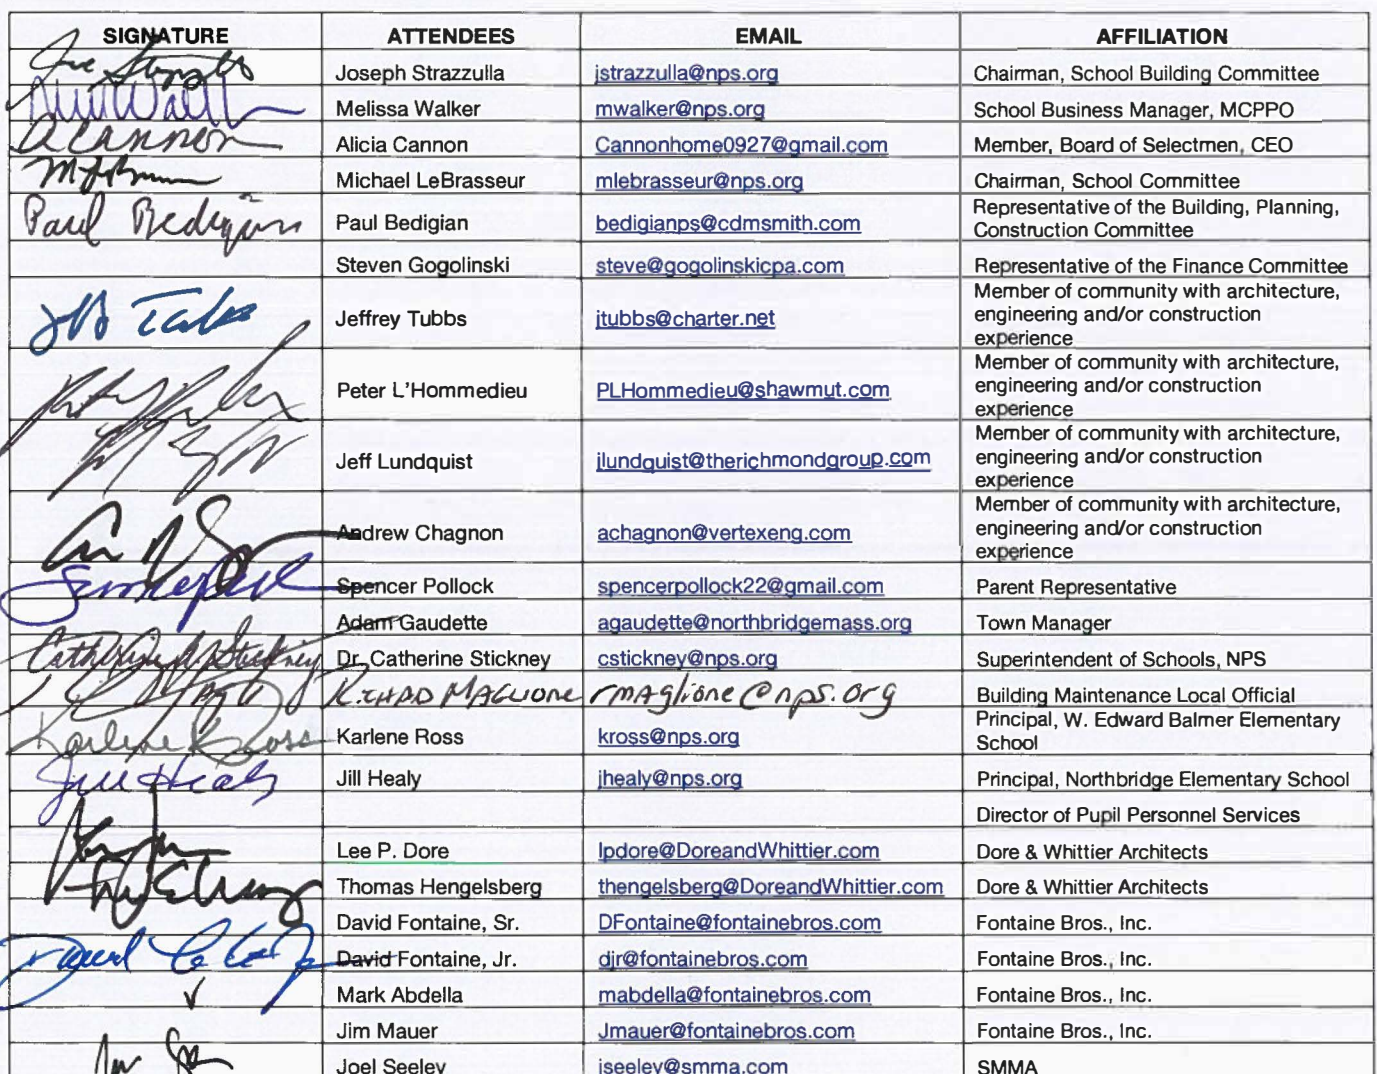 SIGNATURE ATTENDEES EMAIL AFFILIATION
Joseph Strazzulla jstrazzulla@nps.org Chairman, School Building Committee
Melissa Walker mwalker@nps.org School Business Manager, MCPPO
ACANNON Alicia Cannon Cannonhome0927@gmail.com Member, Board of Selectmen, CEO
Michael LeBrasseur mlebrasseur@nps.org Chairman, School Committee
Paul Bedigian Paul Bedigian bedigianps@cdmsmith.com Representative of the Building, Planning,
Construction Committee
Steven Gogolinski steve@gogolinskicpa.com Representative of the Finance Committee
Jeffrey Tubbs jtubbs@charter.net Member of community with architecture,
engineering and/or construction
experience
Peter L'Hommedieu PLHommedieu@shawmut.com Member of community with architecture,
engineering and/or construction
experience
Jeff Lundquist jlundquist@therichmondgroup.com Member of community with architecture,
engineering and/or construction
experience
Andrew Chagnon achagnon@vertexeng.com Member of community with architecture,
engineering and/or construction
experience
Spencer Pollock spencerpollock22@gmail.com Parent Representative
Adam Gaudette agaudette@northbridgemass.org Town Manager
Catherine A Stickney Dr. Catherine Stickney cstickney@nps.org Superintendent of Schools, NPS
RICHARD MAGLIONE rmaglione@nps.org Building Maintenance Local Official
Karlene Ross Karlene Ross kross@nps.org Principal, W. Edward Balmer Elementary
School
Jill Healy Jill Healy jhealy@nps.org Principal, Northbridge Elementary School
Director of Pupil Personnel Services
Lee P. Dore lpdore@DoreandWhittier.com Dore & Whittier Architects
Thomas Hengelsberg thengelsberg@DoreandWhittier.com Dore & Whittier Architects
David Fontaine, Sr. DFontaine@fontainebros.com Fontaine Bros., Inc.
David Fontaine, Jr. djr@fontainebros.com Fontaine Bros., Inc.
Mark Abdella mabdella@fontainebros.com Fontaine Bros., Inc.
Jim Mauer Jmauer@fontainebros.com Fontaine Bros., Inc.
Joel Seeley jseeley@smma.com SMMA